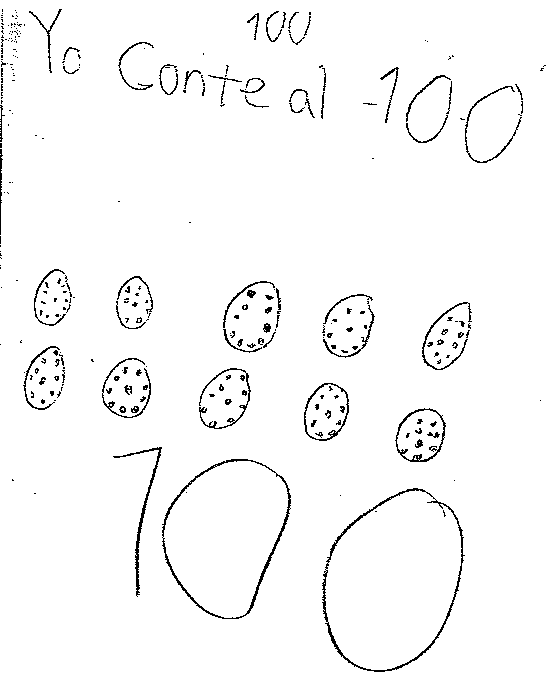 100
Yo Conte al 100
100